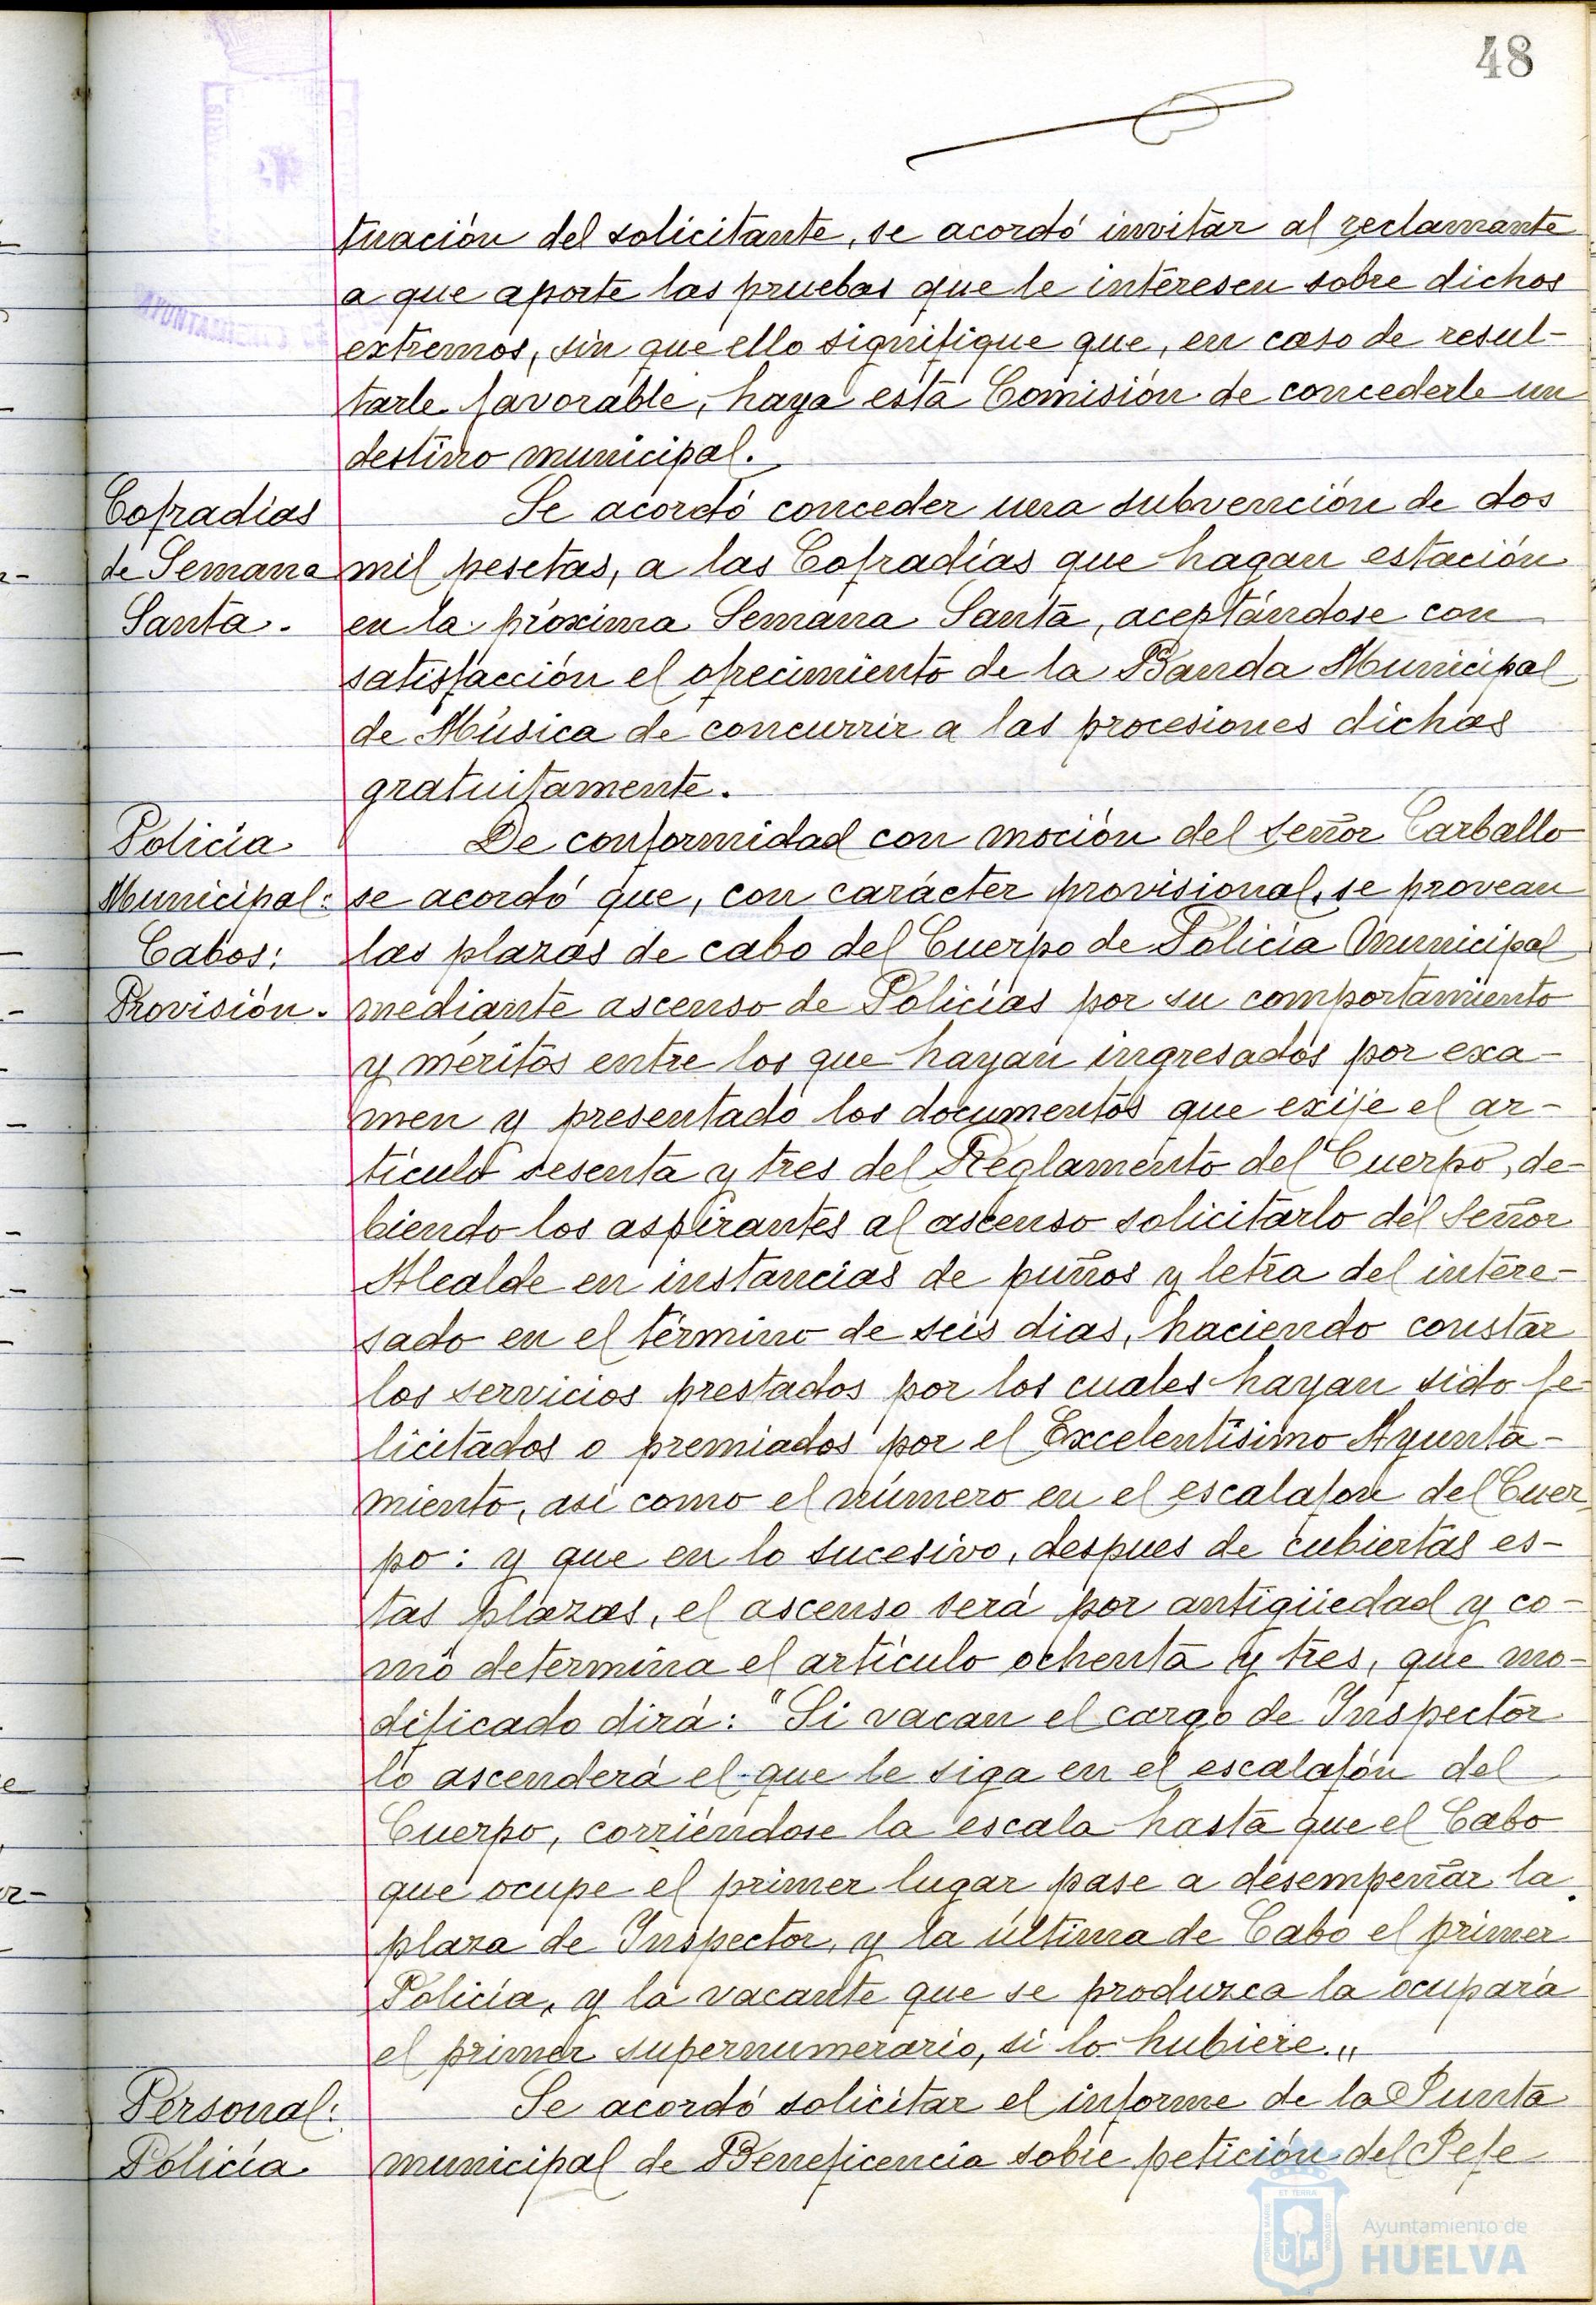 48
tuación del solicitante, se acordó invitar al reclamante
a que aporte las pruebas que le interesen sobre dichos
extremos, sin que ello signifique que, en caso de resul-
tarle favorable, haya esta Comisión de concederle un
destino municipal.
Cofradías
de Semana
Santa.
Se acordó conceder una subvención de dos
mil pesetas, a las Cofradías que hagan estación
en la próxima Semana Santa, aceptándose con
satisfacción el ofrecimiento de la Banda Municipal
de Música de concurrir a las procesiones dichas
gratuitamente.
Policía
Municipal:
Cabos:
Provisión.
De conformidad con moción del señor Carballo
se acordó que, con carácter provisional, se provean
las plazas de cabo del Cuerpo de Policía Municipal
mediante ascenso de Policías por su comportamiento
y méritos entre los que hayan ingresados por exa-
men y presentado los documentos que exije el ar-
tículo sesenta y tres del Reglamento del Cuerpo, de-
biendo los aspirantes al ascenso solicitarlo del Señor
Alcalde en instancias de puños y letra del intere-
sado en el término de seis dias, haciendo constar
los servicios prestados por los cuales hayan sido fe-
licitados o premiados por el Excelentísimo Ayunta-
miento, así como el número en el escalafon del Cuer
po: y que en lo sucesivo, despues de cubiertas es-
tas plazas, el ascenso será por antigüedad y co-
mo determina el artículo ochenta y tres, que mo-
dificado dirá: "Si vacan el cargo de Inspector
lo ascenderá el que le siga en el escalafón del
Cuerpo, corriéndose la escala hasta que el Cabo
que ocupe el primer lugar pase a desempeñar la
plaza de Inspector, y la última de Cabo el primer
Policía, y la vacante que se produzca la ocupará
el primer supernumerario, si lo hubiere."
Personal:
Policía
Se acordó solicitar el informe de la Junta
municipal de Beneficencia sobre petición del Jefe
Ayuntamiento de
HUELVA